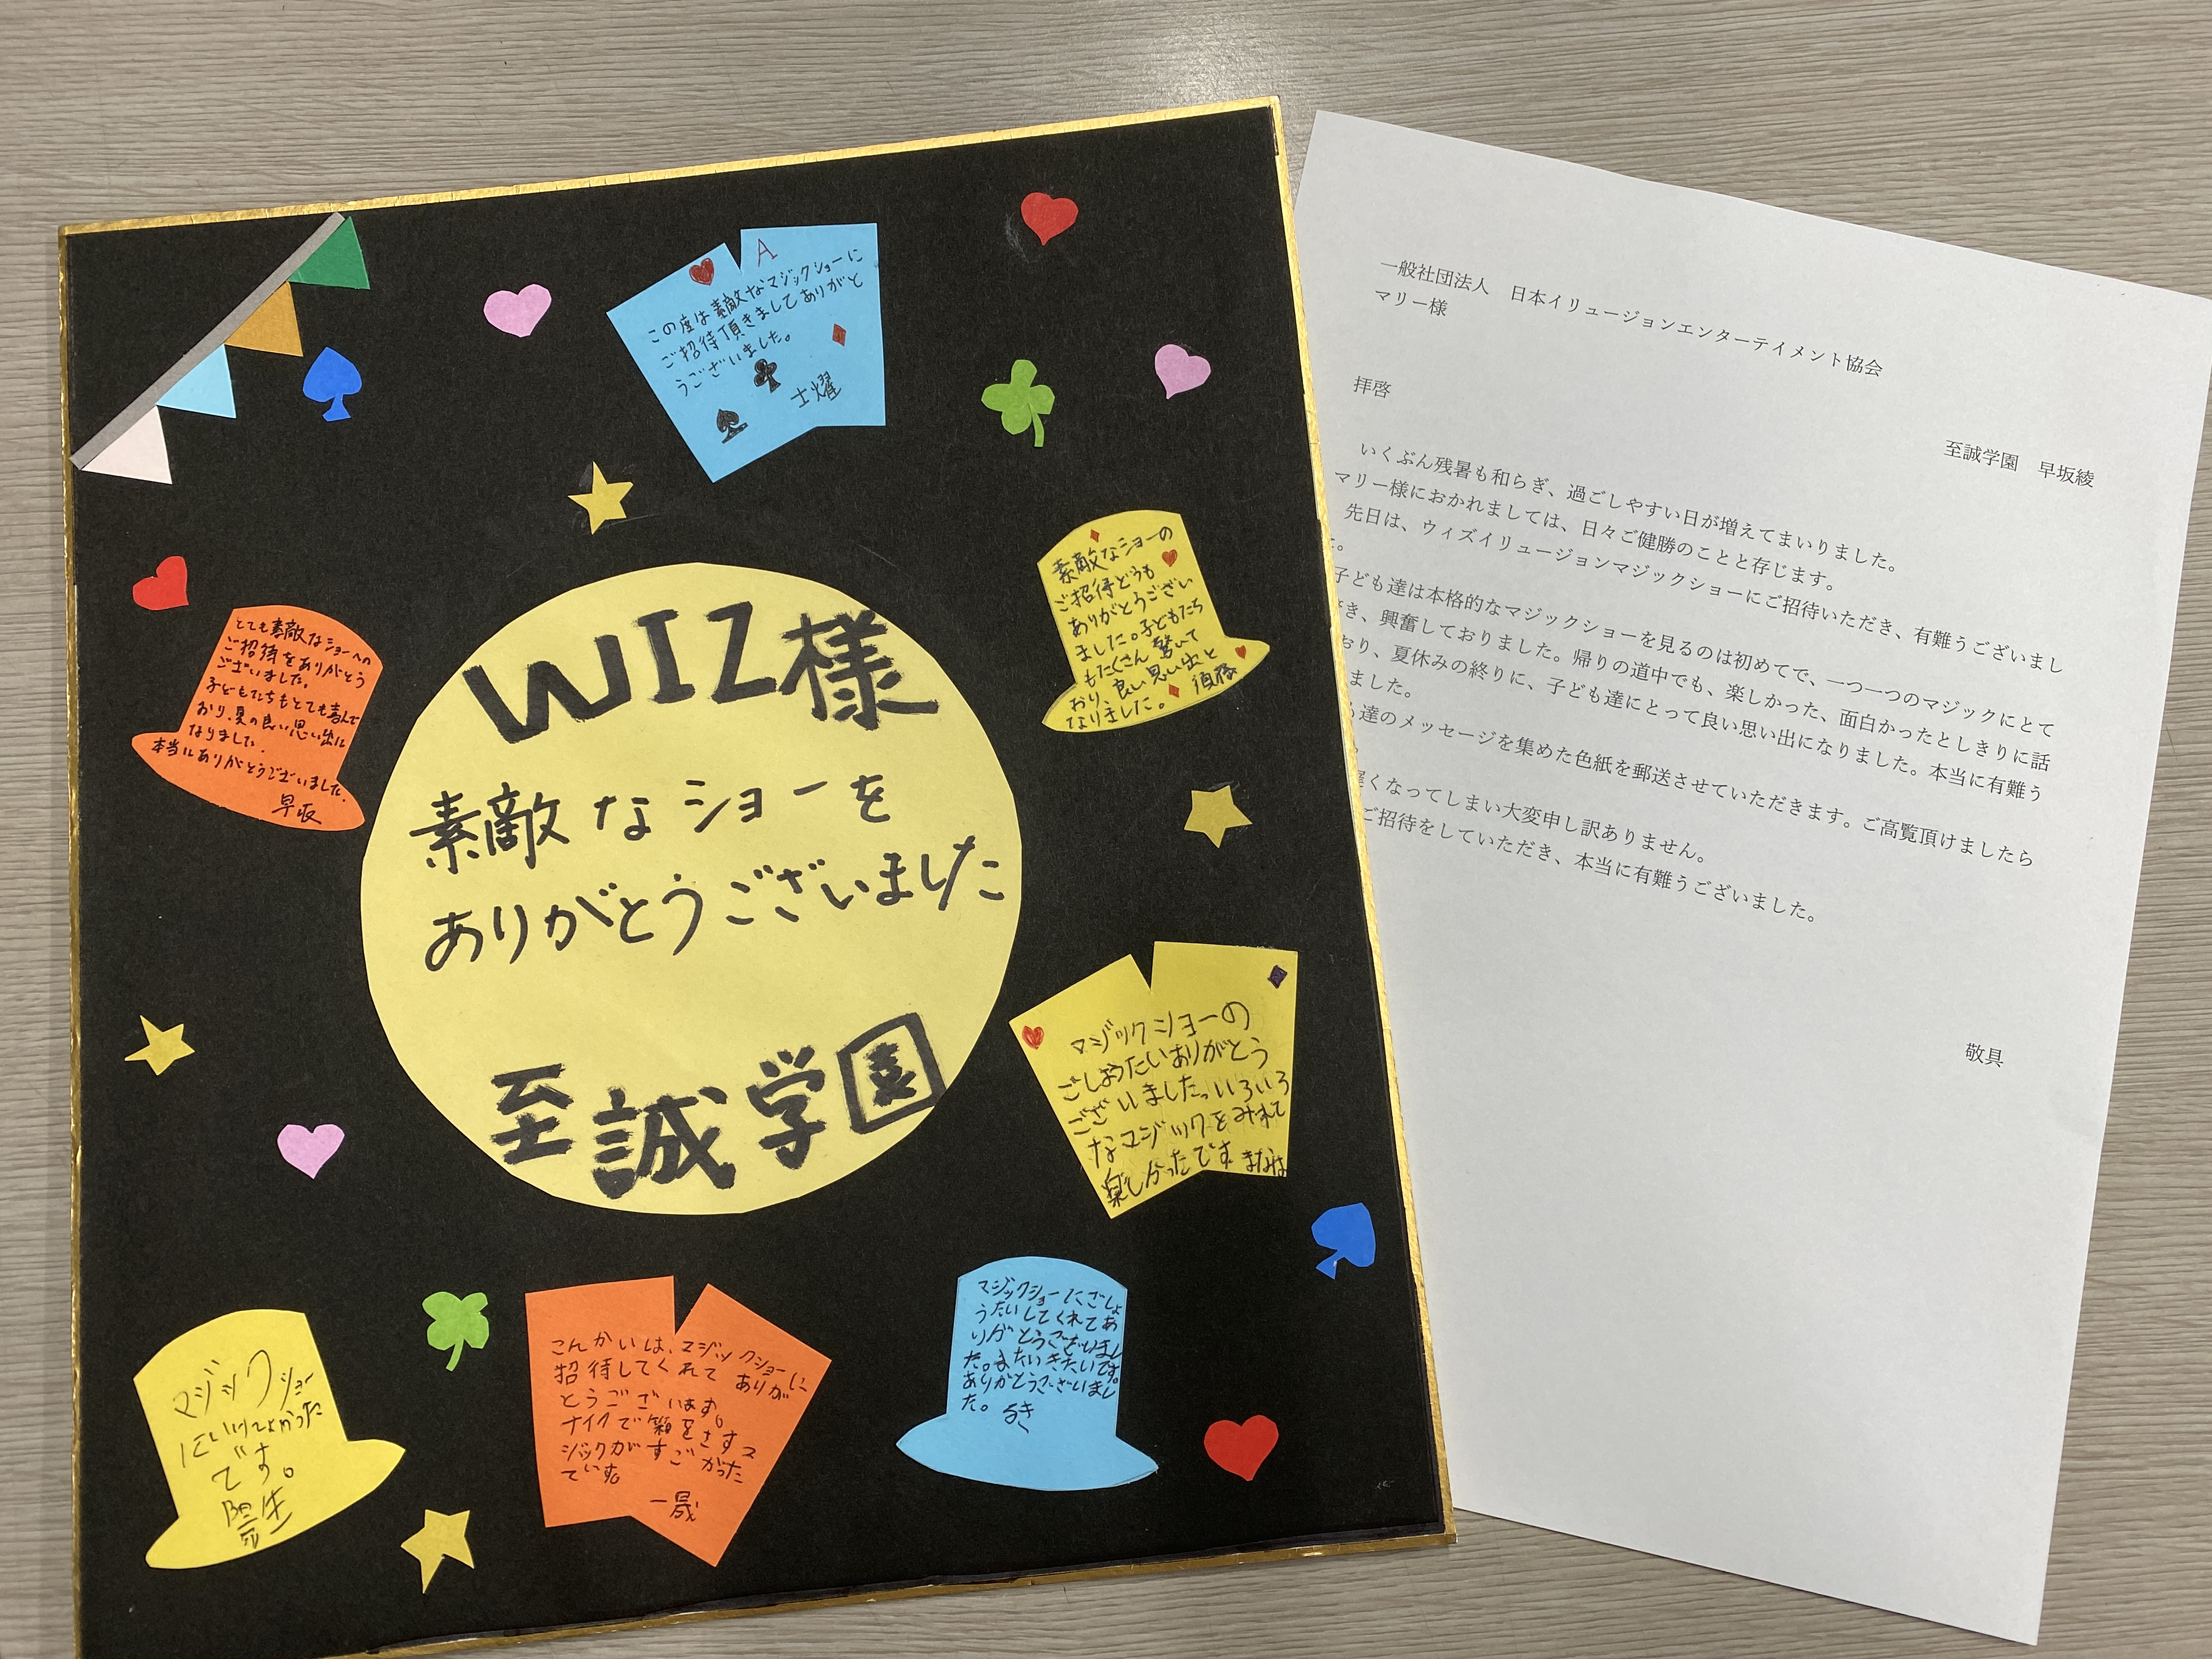 WIZ様
素敵なショーを
ありがとうございました
至誠学園
A
この度は素敵なマジックショーに
ご招待頂きましてありがと
うございました。
士燿
素敵なショーの
ご招待どうも
ありがとうござい
ました。子どもたち
もたくさん驚いて
おり、良い思い出と
なりました。
とても素敵なショーへの
ご招待をありがとう
ございました。
子どもたちもとても喜んで
おり、夏の良い思い出に
なりました。
本当にありがとうございました。
早坂
マジックショーの
ごしょうたいありがとう
ございましたっいろいろ
なマジックをみれて
楽しかったです
マジックショー
にいけてよかった
です。
こんかいは、マジックショーに
招待してくれて ありが
とうございます。
ナイフで箱をさすマ
ジックがすごかった
です
一晟
マジックショーにごしょ
うたいしてくれてあ
りがとうございまし
た。またいきたいです。
ありがとうございまし
た。
一般社団法人　日本イリュージョンエンターテイメント協会
マリー様
至誠学園　早坂綾
拝啓
いくぶん残暑も和らぎ、過ごしやすい日が増えてまいりました。
マリー様におかれましては、日々ご健勝のことと存じます。
先日は、ウィズイリュージョンマジックショーにご招待いただき、有難うございまし
た。
子ども達は本格的なマジックショーを見るのは初めてで、一つ一つのマジックにとて
き、興奮しておりました。帰りの道中でも、楽しかった、面白かったとしきりに話
おり、夏休みの終りに、子ども達にとって良い思い出になりました。本当に有難う
ました。
達のメッセージを集めた色紙を郵送させていただきます。ご高覧頂けましたら
遅くなってしまい大変申し訳ありません。
ご招待をしていただき、本当に有難うございました。
敬具